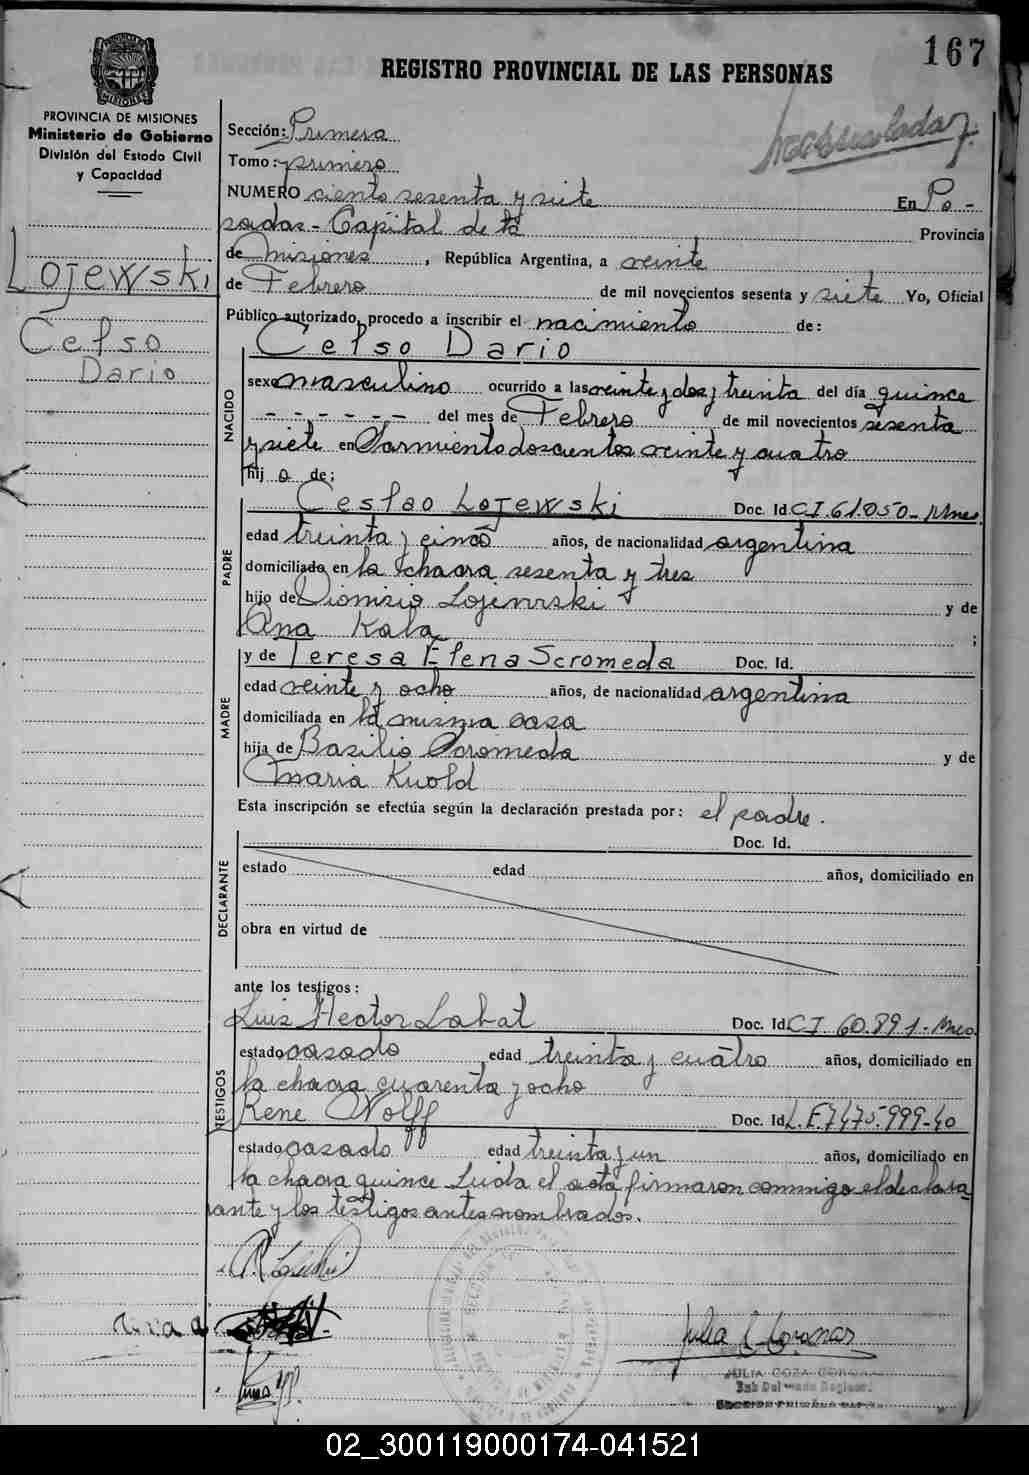 167
REGISTRO PROVINCIAL DE LAS PERSONAS
PROVINCIA DE MISIONES
Ministerio de Gobierno
División del Estado Civil
y Capacidad
Lojewski
Celso
Dario
Sección: Primera
Tomo: primero
NUMERO ciento sesenta y siete En Po-
sadas - Capital de la Provincia
de Misiones, República Argentina, a veinte
de Febrero de mil novecientos sesenta y siete Yo, Oficial
Público autorizado, procedo a inscribir el nacimiento de:
Celso Dario
NACIDO
sexo masculino ocurrido a las veinte y dos y treinta del día quince
- - - - - - del mes de Febrero de mil novecientos sesenta
y siete en Sarmiento doscientos veinte y cuatro
hij o de:
PADRE
Ceslao Lojewski Doc. Id. C.I. 61.050- Mnes.
edad treinta y cinco años, de nacionalidad argentina
domiciliado en la chacra sesenta y tres
hijo de Dionisio Lojewski y de
Ana Kala ;
MADRE
y de Teresa Elena Scromeda Doc. Id.
edad veinte y ocho años, de nacionalidad argentina
domiciliada en la misma casa
hija de Basilio Scromeda y de
Maria Kuold
Esta inscripción se efectúa según la declaración prestada por: el padre.
DECLARANTE
Doc. Id.
estado edad años, domiciliado en
obra en virtud de
ante los testigos:
TESTIGOS
Luis Hector Labat Doc. Id. C.I. 60.891- Mnes
estado casado edad treinta y cuatro años, domiciliado en
la chacra cuarenta y ocho
Rene Wolff Doc. Id. L.E. 7.475.999-40
estado casado edad treinta y un años, domiciliado en
la chacra quince Leida el acta firmaron conmigo el declara
rante y los testigos antes nombrados.
Julia C. Coronas
JULIA COZA CORONAS
02_300119000174-041521